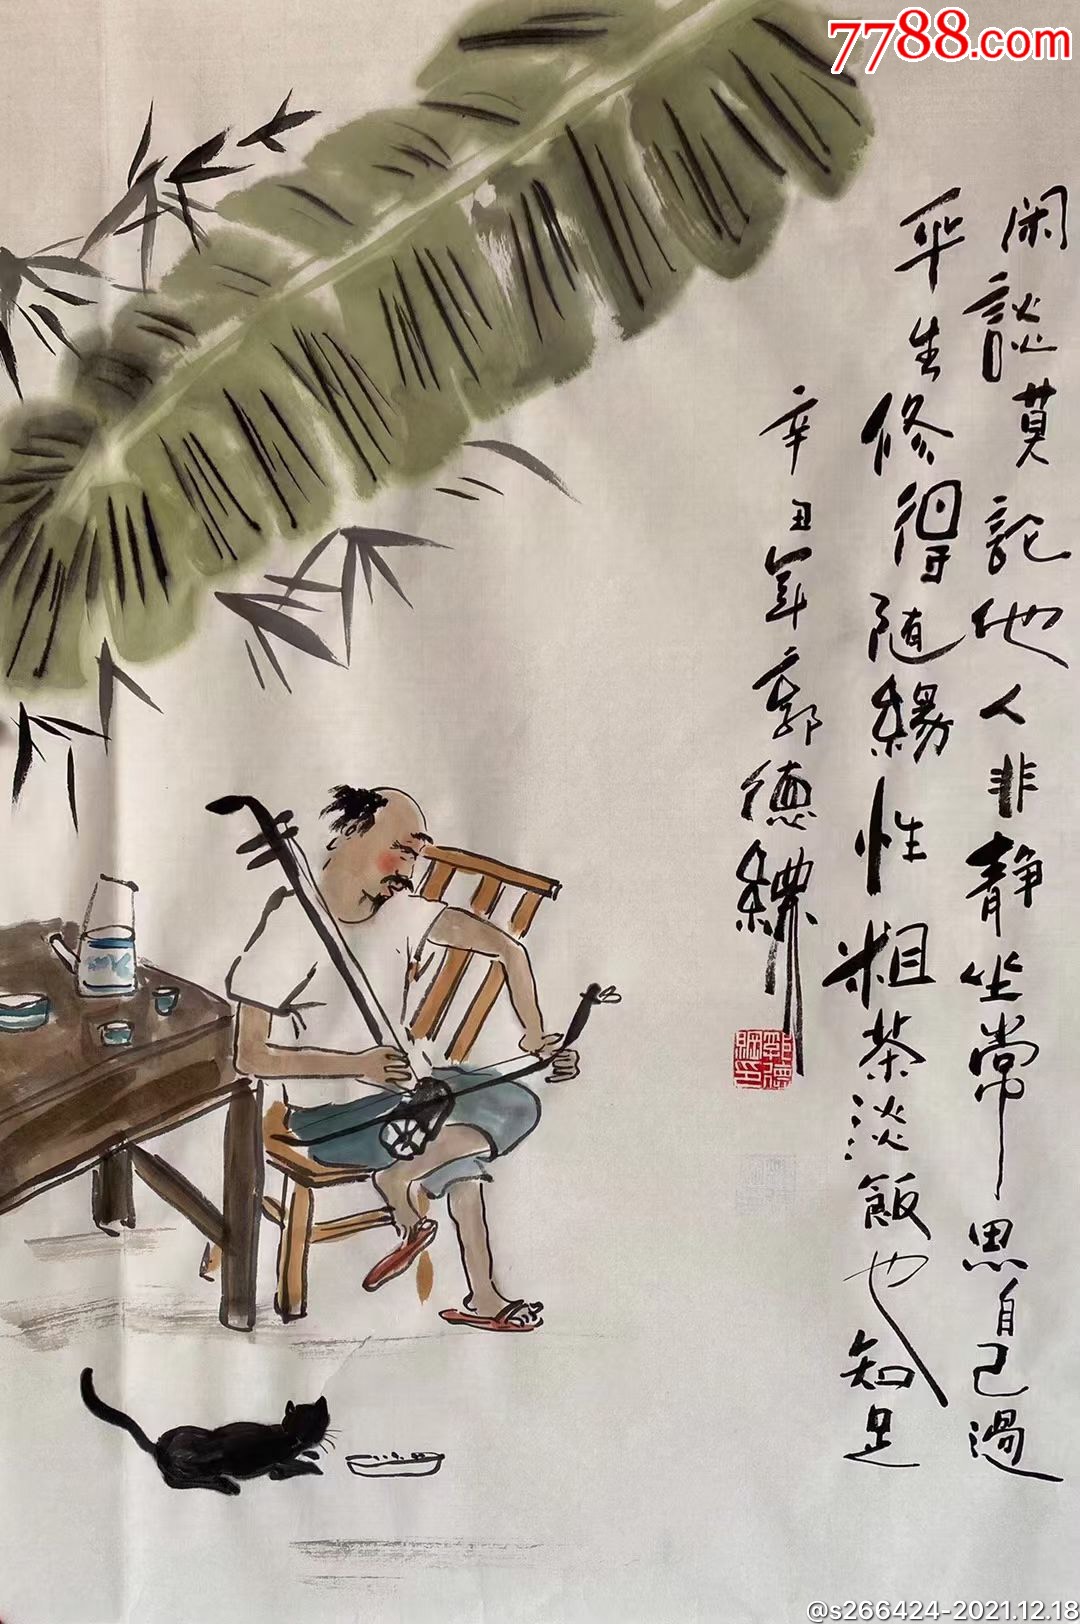 7788.com
闲談莫論他人非静坐常思自己過
平生修得随緣性粗茶淡飯也知足
辛丑年郭德綱
郭德綱印
@s266424-2021.12.18